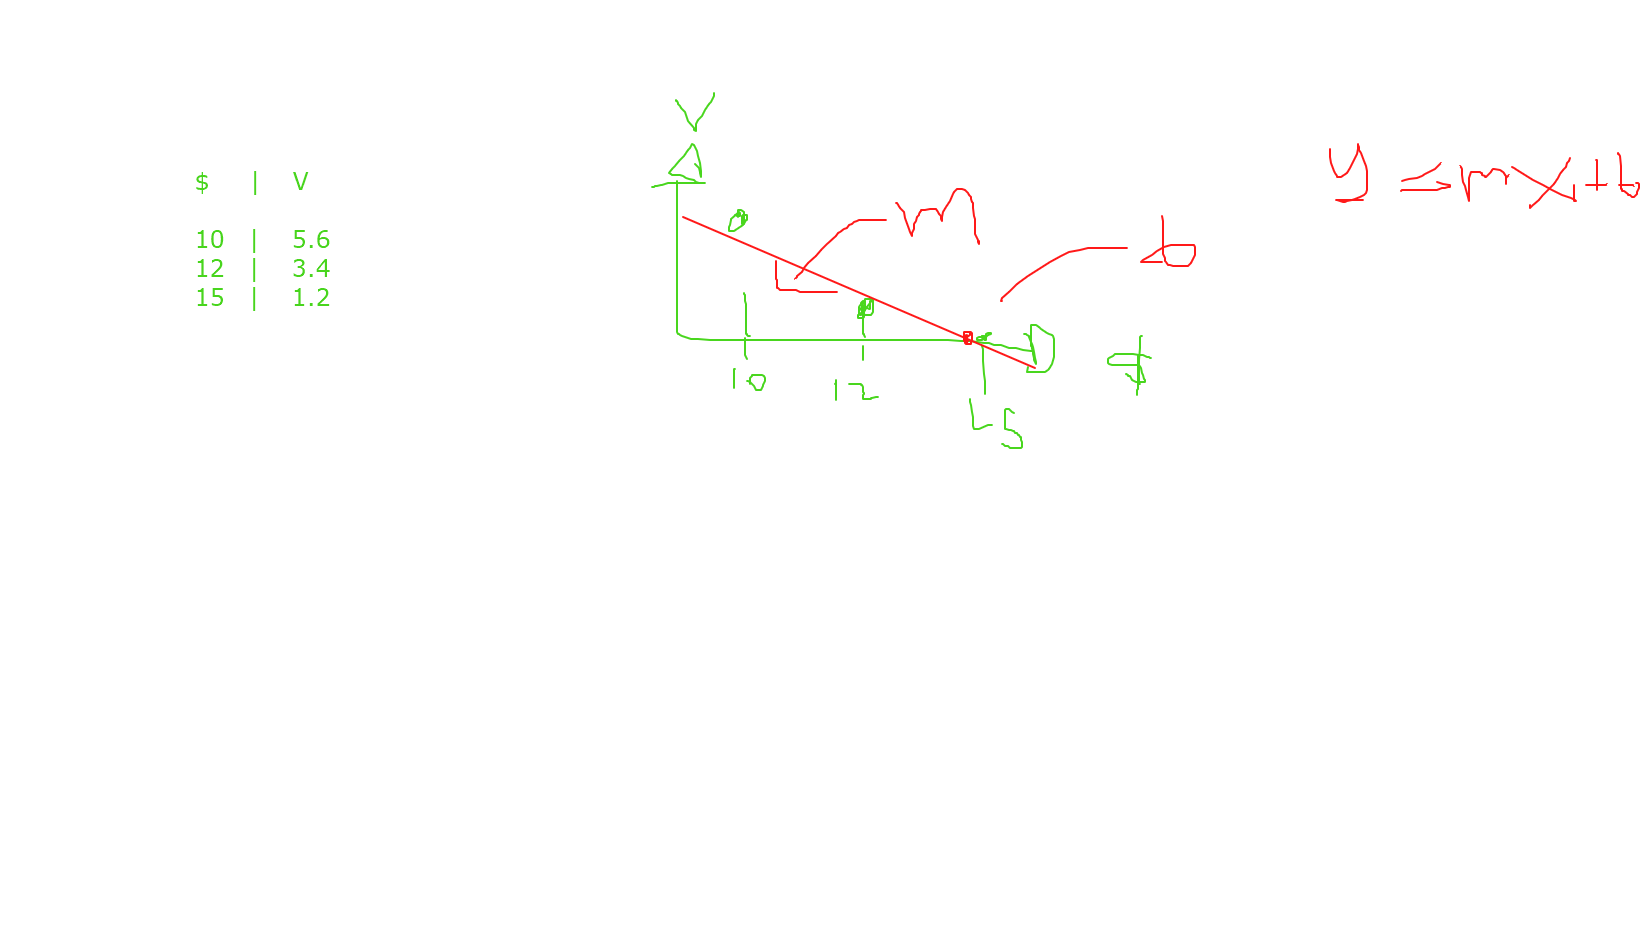 $ | V
10 | 5.6
12 | 3.4
15 | 1.2
V
m
b
10
12
15
$
y = mx + b